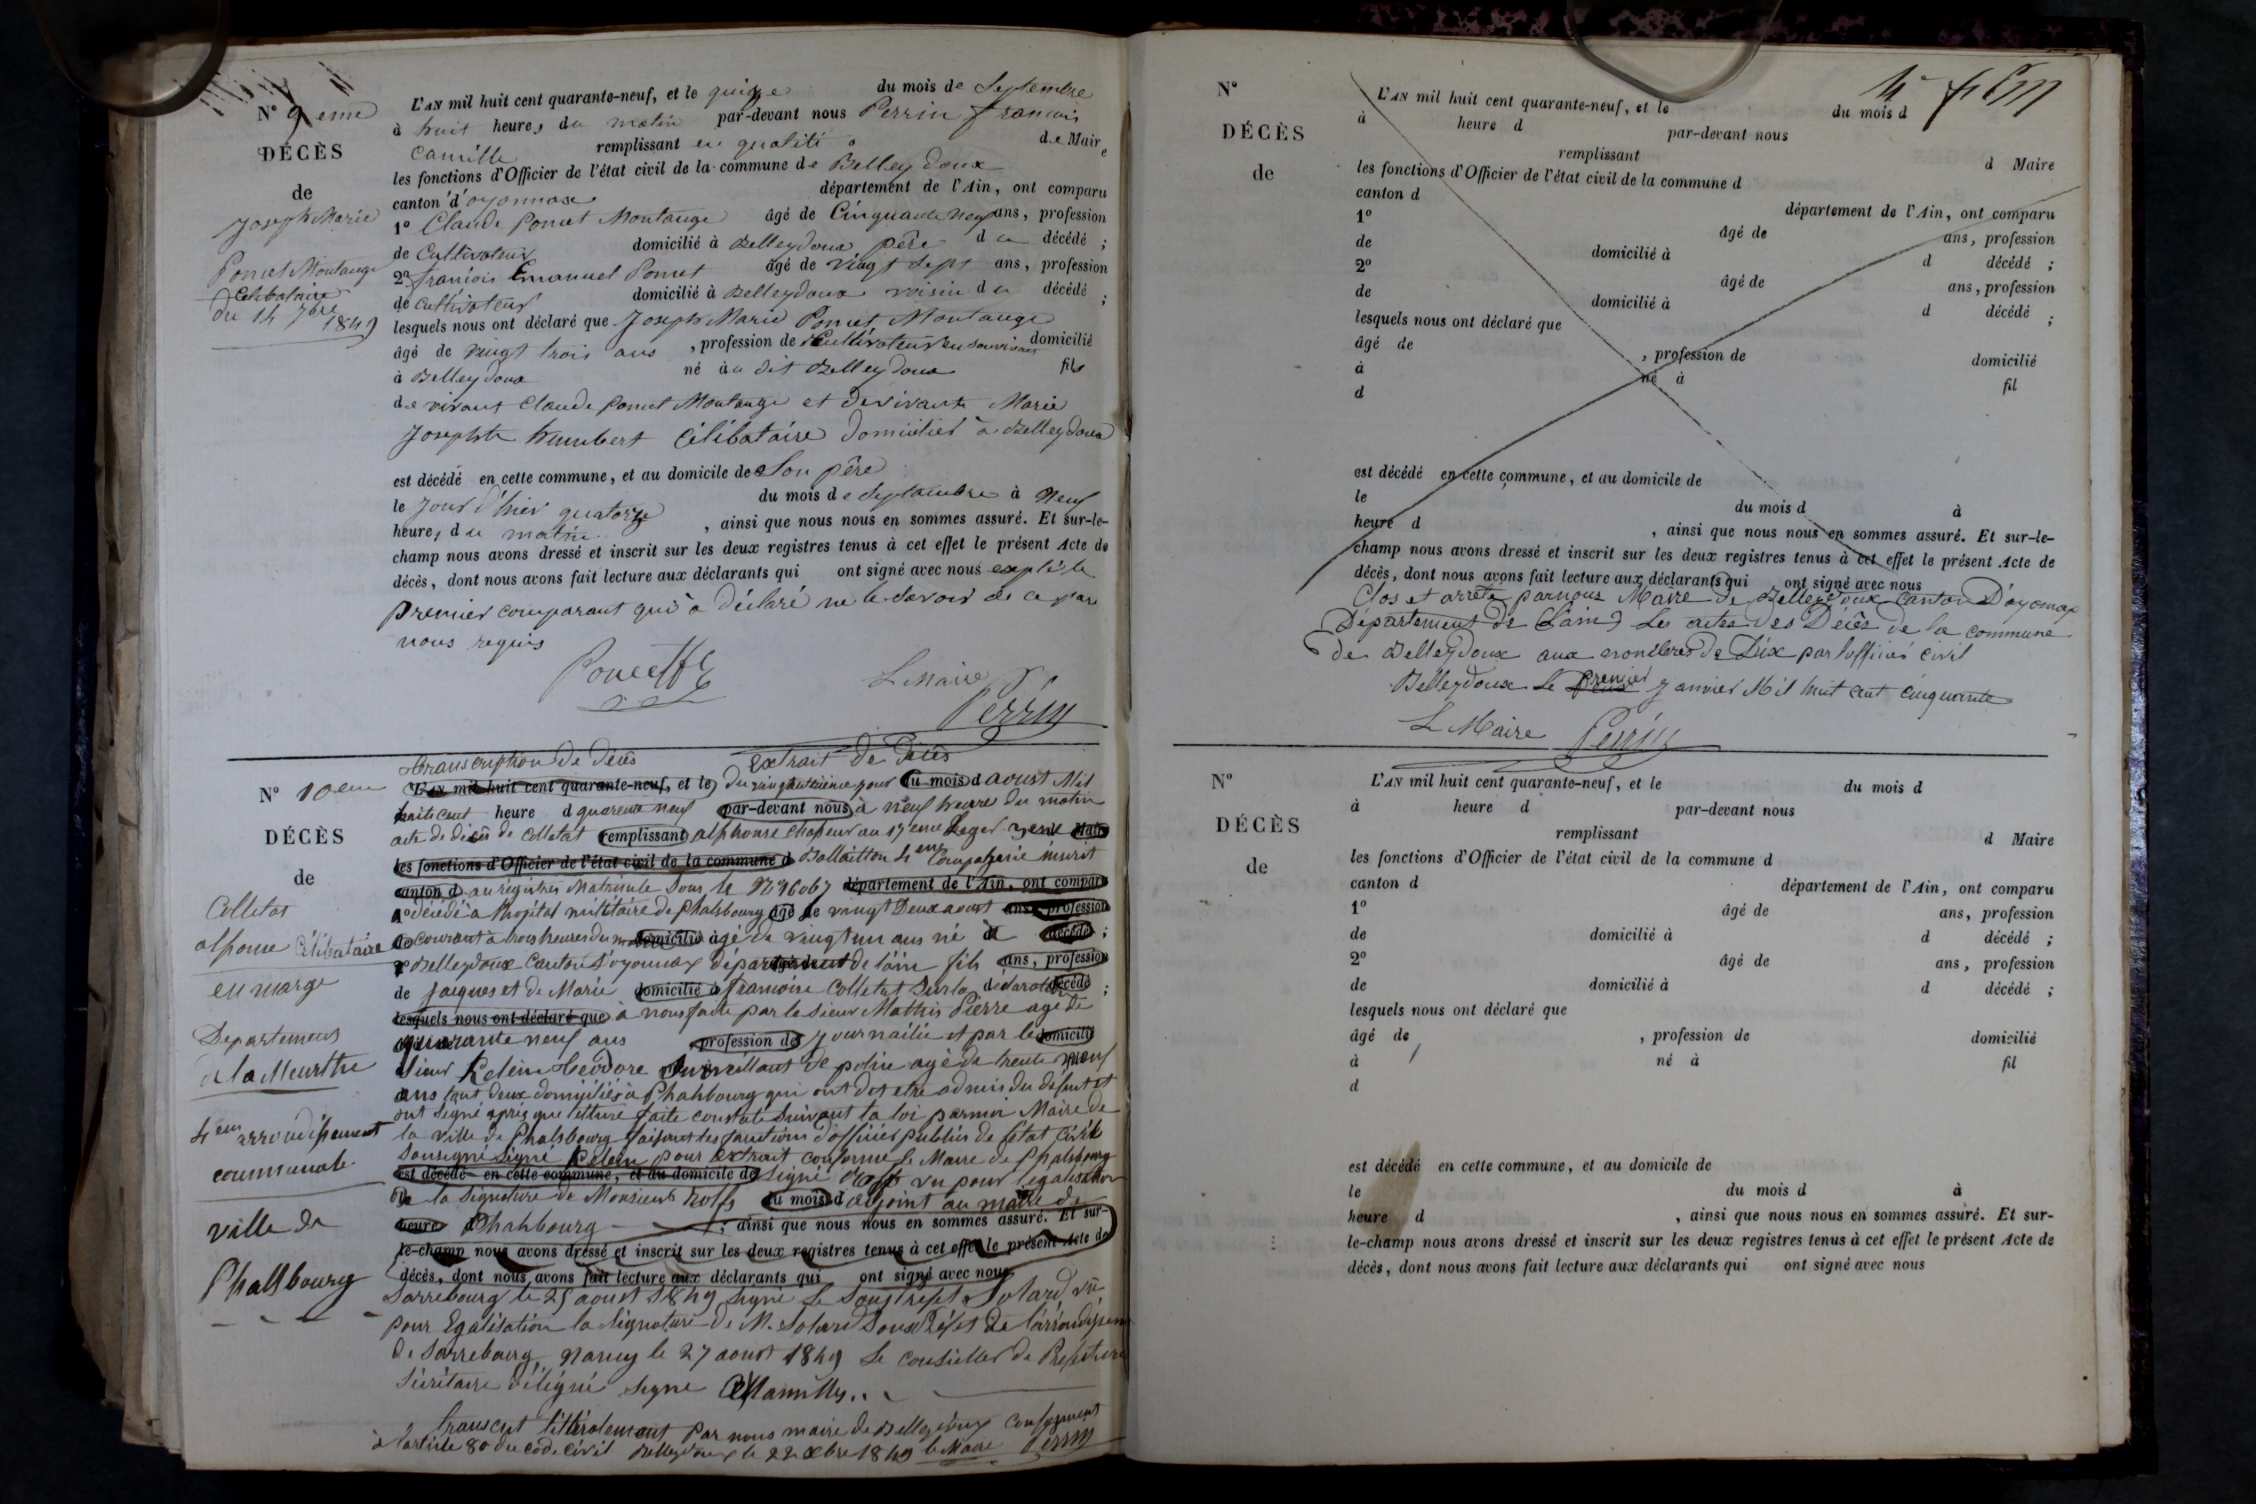 N° 9 eme
DÉCÈS
de
Joseph Marie
Poncet Montange
Célibataire
du 14 7bre
1849
L'AN mil huit cent quarante-neuf, et le quinze du mois de Septembre
à huit heures du matin par-devant nous Perrin françois
camille remplissant en qualité de Maire
les fonctions d'Officier de l'état civil de la commune de Belleydoux
canton d'oyonnax département de l'Ain, ont comparu
1° Claude Poncet Montange âgé de Cinquante neuf ans, profession
de Cultivateur domicilié à Belleydoux père du décédé ;
2° françois Emanuel Poncet âgé de vingt sept ans, profession
de Cultivateur domicilié à Belleydoux voisin du décédé ;
lesquels nous ont déclaré que Joseph Marie Poncet Montange
âgé de vingt trois ans , profession de Cultivateur domicilié
à Belleydoux né au dit Belleydoux fils
de vivant Claude Poncet Montange et de vivante Marie
Josephte humbert Célibataire domicilié à Belleydoux
est décédé en cette commune, et au domicile de Son père
le Jour d'hier quatorze du mois de Septembre à Neuf
heures du matin , ainsi que nous nous en sommes assuré. Et sur-le-
champ nous avons dressé et inscrit sur les deux registres tenus à cet effet le présent Acte de
décès, dont nous avons fait lecture aux déclarants qui ont signé avec nous
premier comparant qui a déclaré ne le savoir de ce par
nous requis
Poncet
Le Maire
Perrin
N° 10 eme
DÉCÈS
de
Colletat
alfonse Célibataire
en marge
Departement
de la Meurthe
4 eme arrondissement
communale
ville de
Phalsbourg
transcription de décès extrait de décès
L'AN mil huit cent quarante-neuf, et le du jour du mois d aoust Mil
huit cent heure d quarante neuf par-devant nous à neuf heure du matin
acte de décès de Colletat remplissant alphonse Chasseur au 17 eme Leger Maire
les fonctions d'Officier de l'état civil de la commune d Bataillon 4 eme Compagnie inscrit
canton d au registres Matricule Sous le N° 6067 département de l'Ain, ont comparu
1° décédé à l'hopital militaire de Phalsbourg âgé de vingt Deux aoust ans, profession
de courant à trois heures du matin domicilié âgé de vingt un ans né à décédé ;
2° Belleydoux Canton d'oyonnax département de l'ain fils ans, profession
de Jacques et de Marie domicilié à françoise Colletat Sur la déclaration décédé ;
lesquels nous ont déclaré que à nous faite par le sieur Mathis Pierre agé de
quarante neuf ans profession de journailié et par le domicilié
Sieur Kelein theodore Surveillant de police agé de trente neuf
ans tout deux domiciliés à Phalsbourg qui ont dit etre admis du defunt et
ont signé après que lecture faite constaté Suivant la loi par moi Maire de
la ville de Phalsbourg faisant les fonctions d'officier publics de l'état civil
Soussigné Signé Kelein pour extrait conforme le Maire de Phalsbourg
est décédé en cette commune, et au domicile de Signé vu pour legalisation
de la Signature de Monsieur du mois d adjoint au maire de
heure Phalsbourg , ainsi que nous nous en sommes assuré. Et sur-
le-champ nous avons dressé et inscrit sur les deux registres tenus à cet effet le présent Acte de
décès, dont nous avons fait lecture aux déclarants qui ont signé avec nous
Sarrebourg le 25 aoust 1849 Signé le Sous Préfet Solard vu
pour Egalisation la Signature de M. Solard Sous Préfet de l'arrondissement
de Sarrebourg, Nancy le 27 aoust 1849 Le Conseiller de Préfecture
Sécrétaire délégué Signe
transcrit littéralement par nous maire de Belleydoux conformement
à l'article 80 du code civil Belleydoux le 22 Xbre 1849 le Maire Perrin
N°
DÉCÈS
de
L'AN mil huit cent quarante-neuf, et le du mois d
à heure d par-devant nous
remplissant d Maire
les fonctions d'Officier de l'état civil de la commune d
canton d département de l'Ain, ont comparu
1° âgé de ans, profession
de domicilié à d décédé ;
2° âgé de ans, profession
de domicilié à d décédé ;
lesquels nous ont déclaré que
âgé de , profession de domicilié
à né à fil
d
est décédé en cette commune, et au domicile de
le du mois d à
heure d , ainsi que nous nous en sommes assuré. Et sur-le-
champ nous avons dressé et inscrit sur les deux registres tenus à cet effet le présent Acte de
décès, dont nous avons fait lecture aux déclarants qui ont signé avec nous
Clos et arrêté par nous Maire de Belleydoux Canton D'oyonnax
Département de l'ain Les actes des Décès de la commune
de Belleydoux aux nombres de Dix par l'officier civil
Belleydoux le premier Janvier Mil huit cent cinquante
Le Maire Perrin
N°
DÉCÈS
de
L'AN mil huit cent quarante-neuf, et le du mois d
à heure d par-devant nous
remplissant d Maire
les fonctions d'Officier de l'état civil de la commune d
canton d département de l'Ain, ont comparu
1° âgé de ans, profession
de domicilié à d décédé ;
2° âgé de ans, profession
de domicilié à d décédé ;
lesquels nous ont déclaré que
âgé de , profession de domicilié
à né à fil
d
est décédé en cette commune, et au domicile de
le du mois d à
heure d , ainsi que nous nous en sommes assuré. Et sur-
le-champ nous avons dressé et inscrit sur les deux registres tenus à cet effet le présent Acte de
décès, dont nous avons fait lecture aux déclarants qui ont signé avec nous